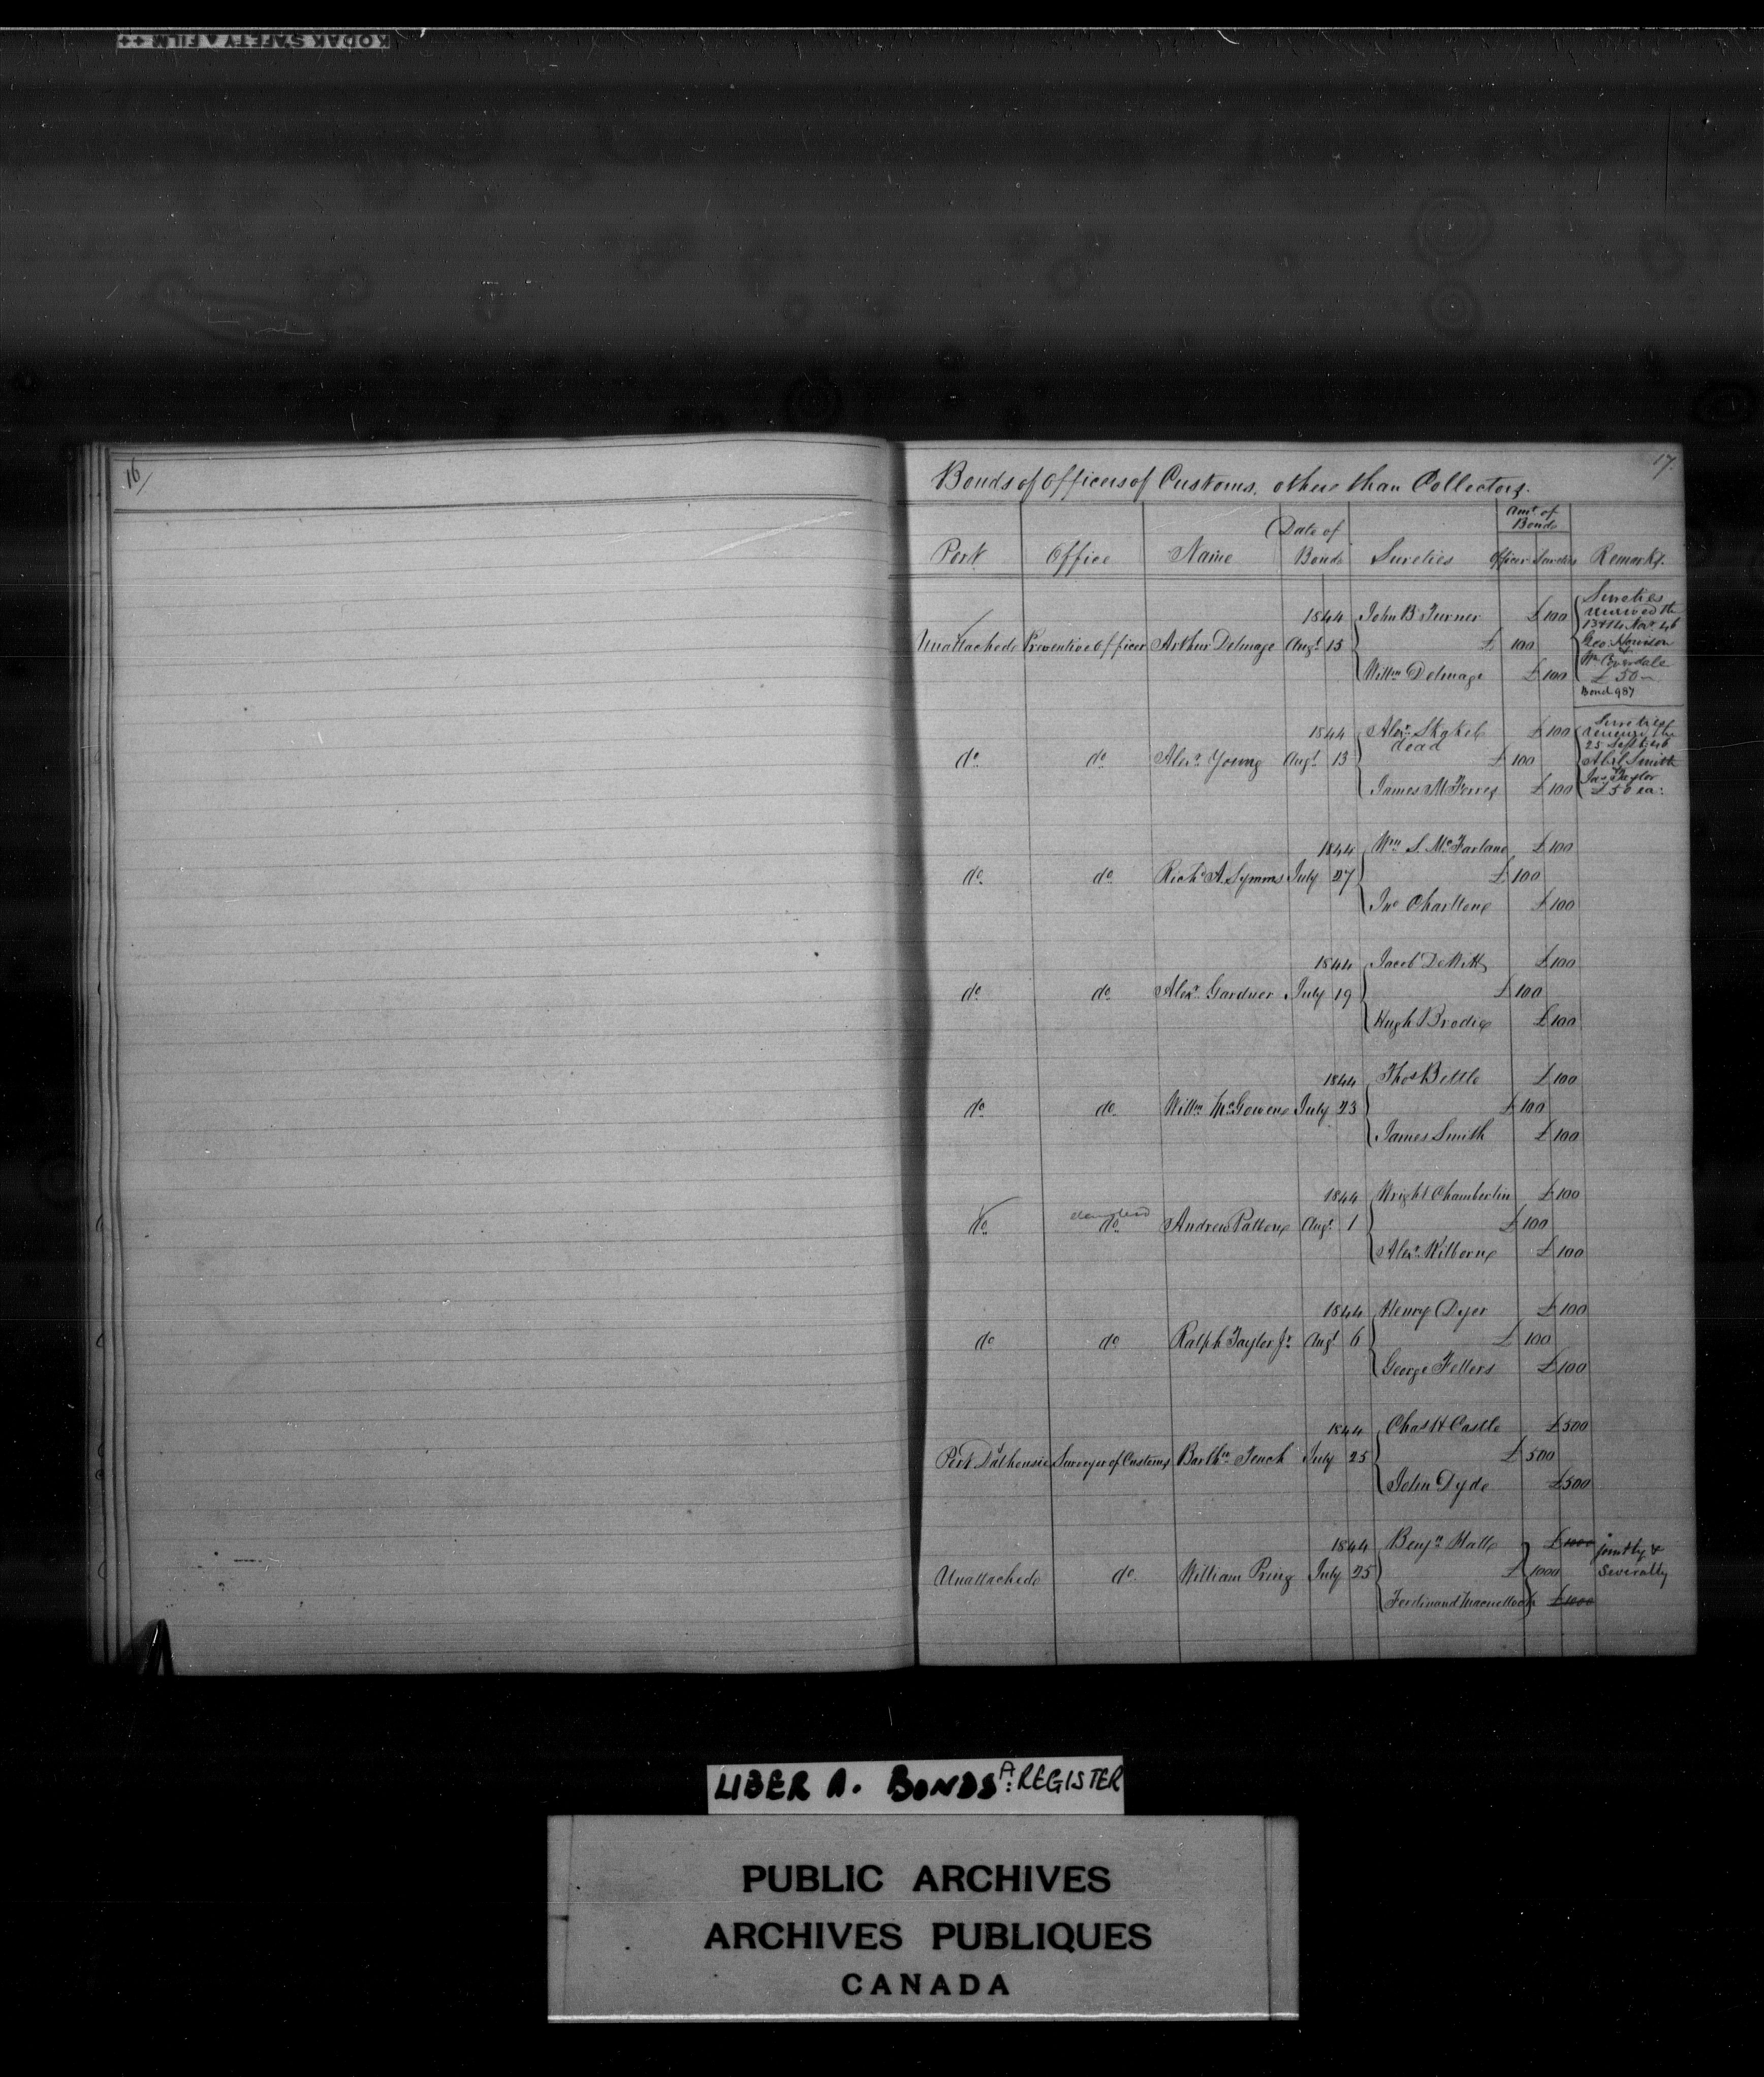 KODAK SAFETY ▲ FILM ++
16/
17.
Bonds of Officers of Customs, other than Collectors.
Port Office Name Date of Bond Sureties Amt. of Bond Officer Sureties Remarks.
1844 John B Turner £ 100 Sureties
renewed the
13 & 14 Novr. 46
Unattached Preventive Officer Arthur Delmage Augt 15 £ 100 Geo.
Wm
Willm Delmage £ 100 £ 50
Bond 987
1844 Alexr. Skakel £ 100 Sureties
dead renewed the
25 Septr. 46
do. do. Alexr. Young Augt 13 £ 100 Abel Smith
Jas Taylor
James M Ferres £ 100 £ 50 ea:
1844 Wm. S. McFarland £ 100
do. do. Richd. A. Symms July 27 £ 100
Jno Charlton £ 100
1844 Jacob DeWitt £ 100
do. do. Alexr. Gardner July 19 £ 100
Hugh Brodie £ 100
1844 Thos £ 100
do. do. Willm McGowen July 23 £ 100
James Smith £ 100
1844 Wright Chamberlin £ 100
do. do. Andrew Patton Augt. 1 £ 100
Alexr. Kilborn £ 100
1844 Henry Dyer £ 100
do. do. Ralph Taylor Jr. Augt 6 £ 100
George Fellers £ 100
1844 Chas H Castle £ 500
Port Dalhousie Surveyor of Customs Barthw. Tench July 25 £ 500
John Dyde £ 500
1844 Benjn. Hall £ 1000 jointly &
Unattached do. William Pring July 25 £ 1000 Severally
Ferdinand £ 1000
LIBER A. BONDS A: REGISTER
PUBLIC ARCHIVES
ARCHIVES PUBLIQUES
CANADA